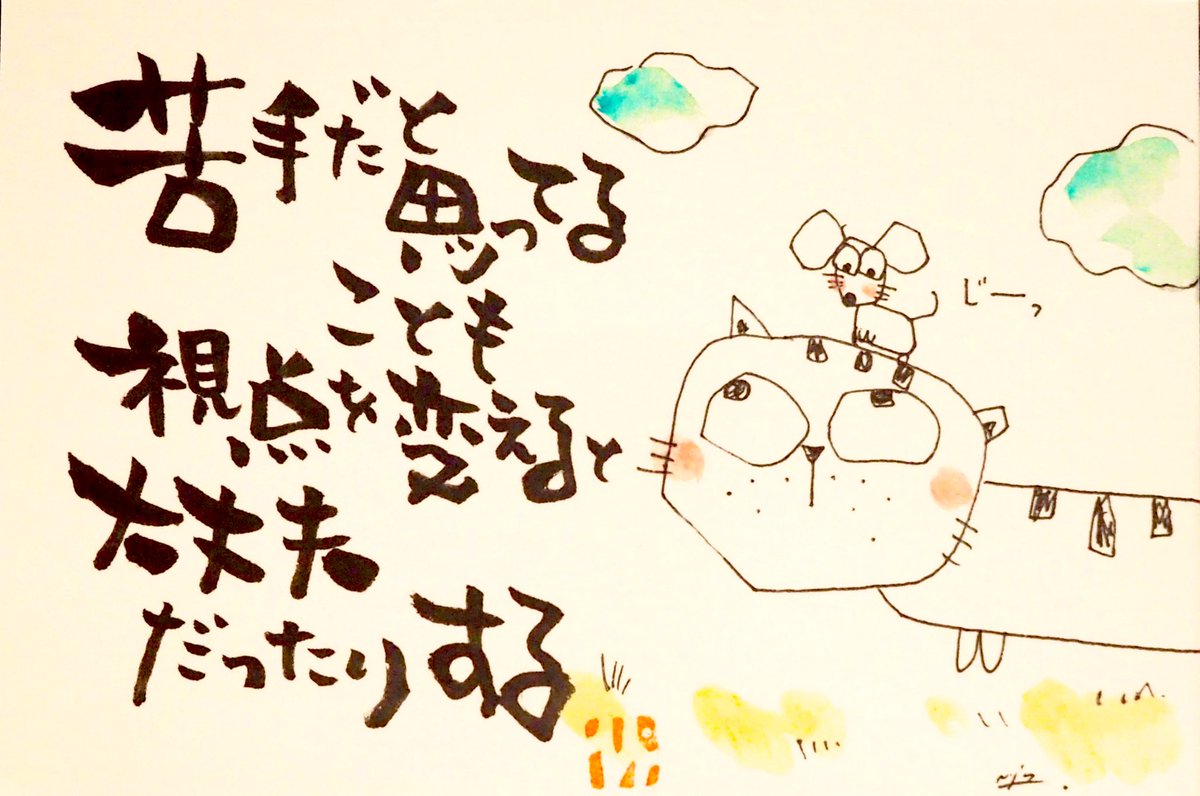 苦手だと思ってる
ことも
視点を変えると
大丈夫
だったりする
じーっ